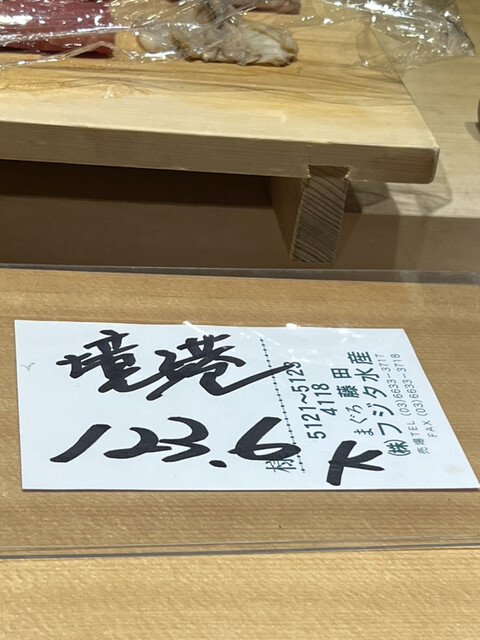 境港
123.6
様
下
5121~5123
4118
まぐろ 藤田
㈱フジタ水産
売場TEL (03)6633-3717
FAX (03)6633-3718